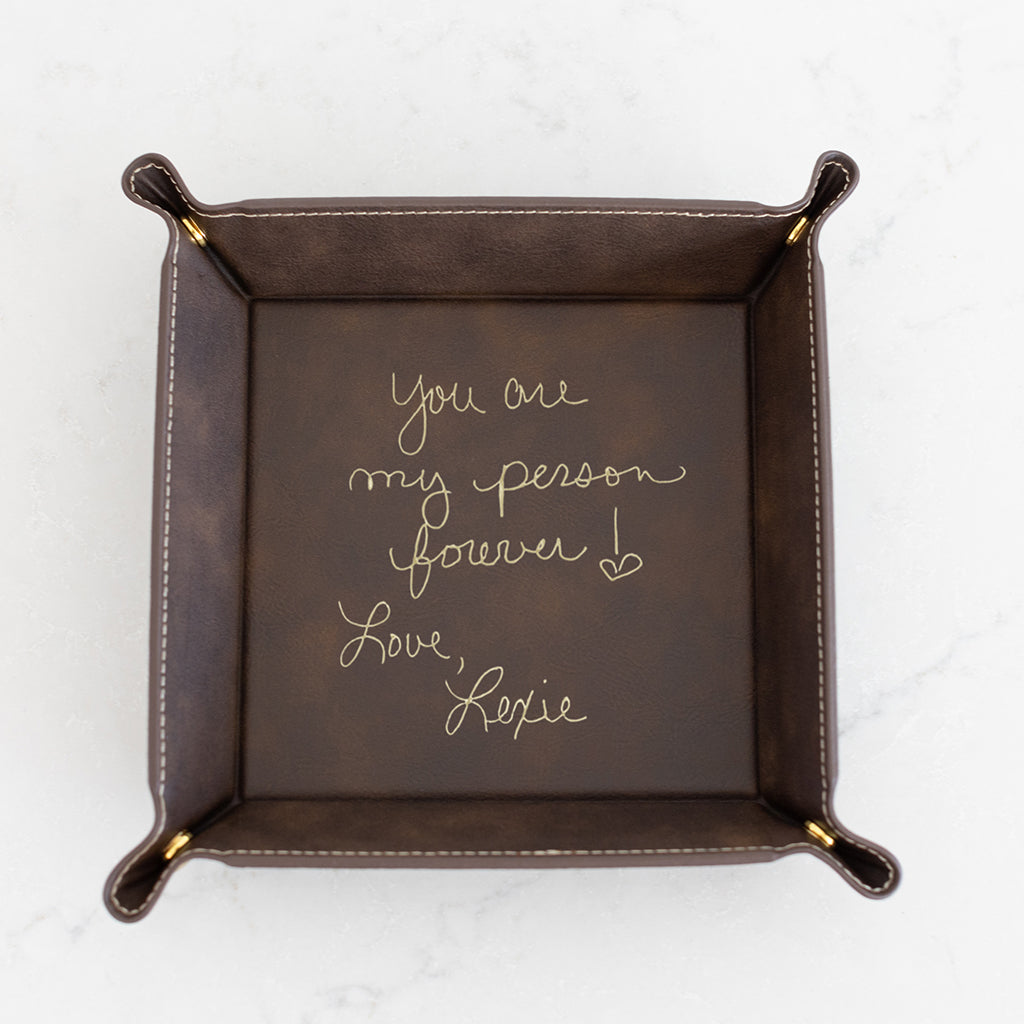 You are
my person
forever!
Love,
Lexie